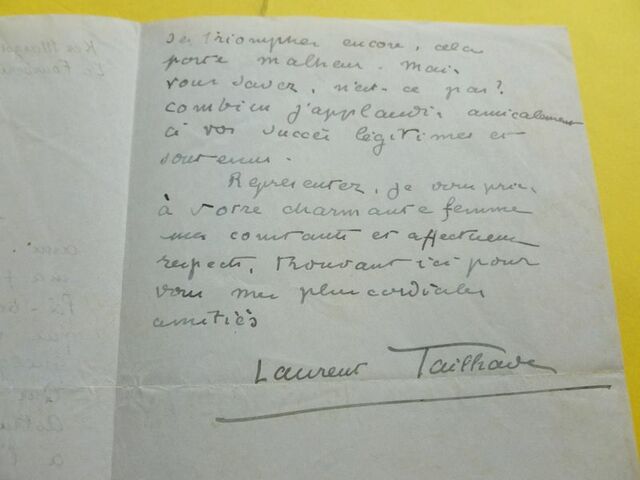 de triompher encore, cela
porte malheur. Mais
vous savez, n'est-ce pas?
combien j'applaudis amicalement
à vos succès légitimes et
soutenus.
Représentez, je vous prie,
à votre charmante femme
mes constants et affectueux
respects, trouvant ici pour
vous mes plus cordiales
amitiés
Laurent Tailhade